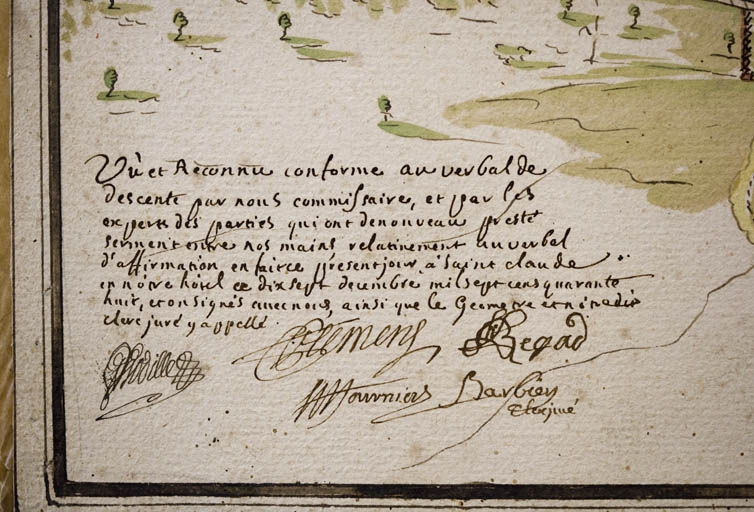 Vû et Reconnu conforme au verbal de
descente par nous commissaire, et par les
experts des parties qui ont denouveau presté
serment entre nos mains relativement au verbal
d'affirmation en fait ce présent jour, à saint claude
en nôtre hôtel ce dix sept decembre mil sept cens quarante
huit, et on signés avec nous, ainsi que le Geometre et
clerc juré y appellé
Clemens Regad
Fourniers Barbier
Clerc juré